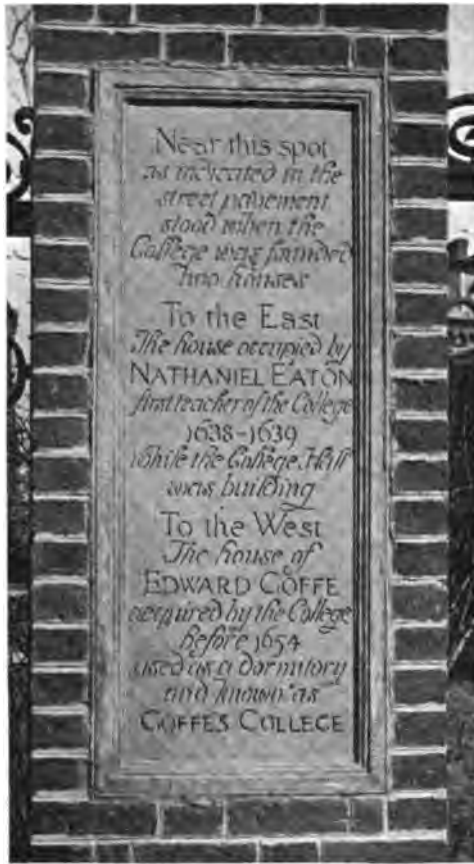 Near this spot
as indicated in the
street pavement
stood when the
College was founded
two houses
To the East
The house occupied by
NATHANIEL EATON
first teacher of the College
1638-1639
while the College Hall
was building
To the West
The house of
EDWARD GOFFE
acquired by the College
before 1654
used as a dormitory
and known as
GOFFES COLLEGE